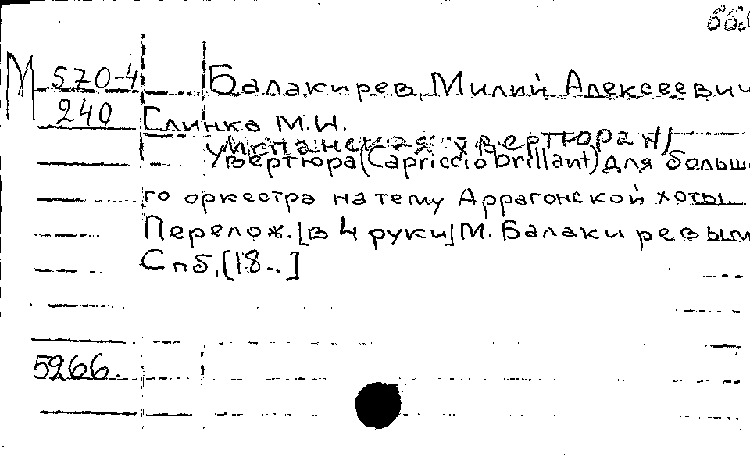 М 570-4 Балакирев, Милий Алексеевич
240 Глинка М.И.
Испанская увертюра №1
Увертюра (Capriccio brillant) для больш
го оркестра на тему Аррагонской хоты
Перелож. [в 4 руки] М. Балаки ревым
Спб, [18-.]
5966.